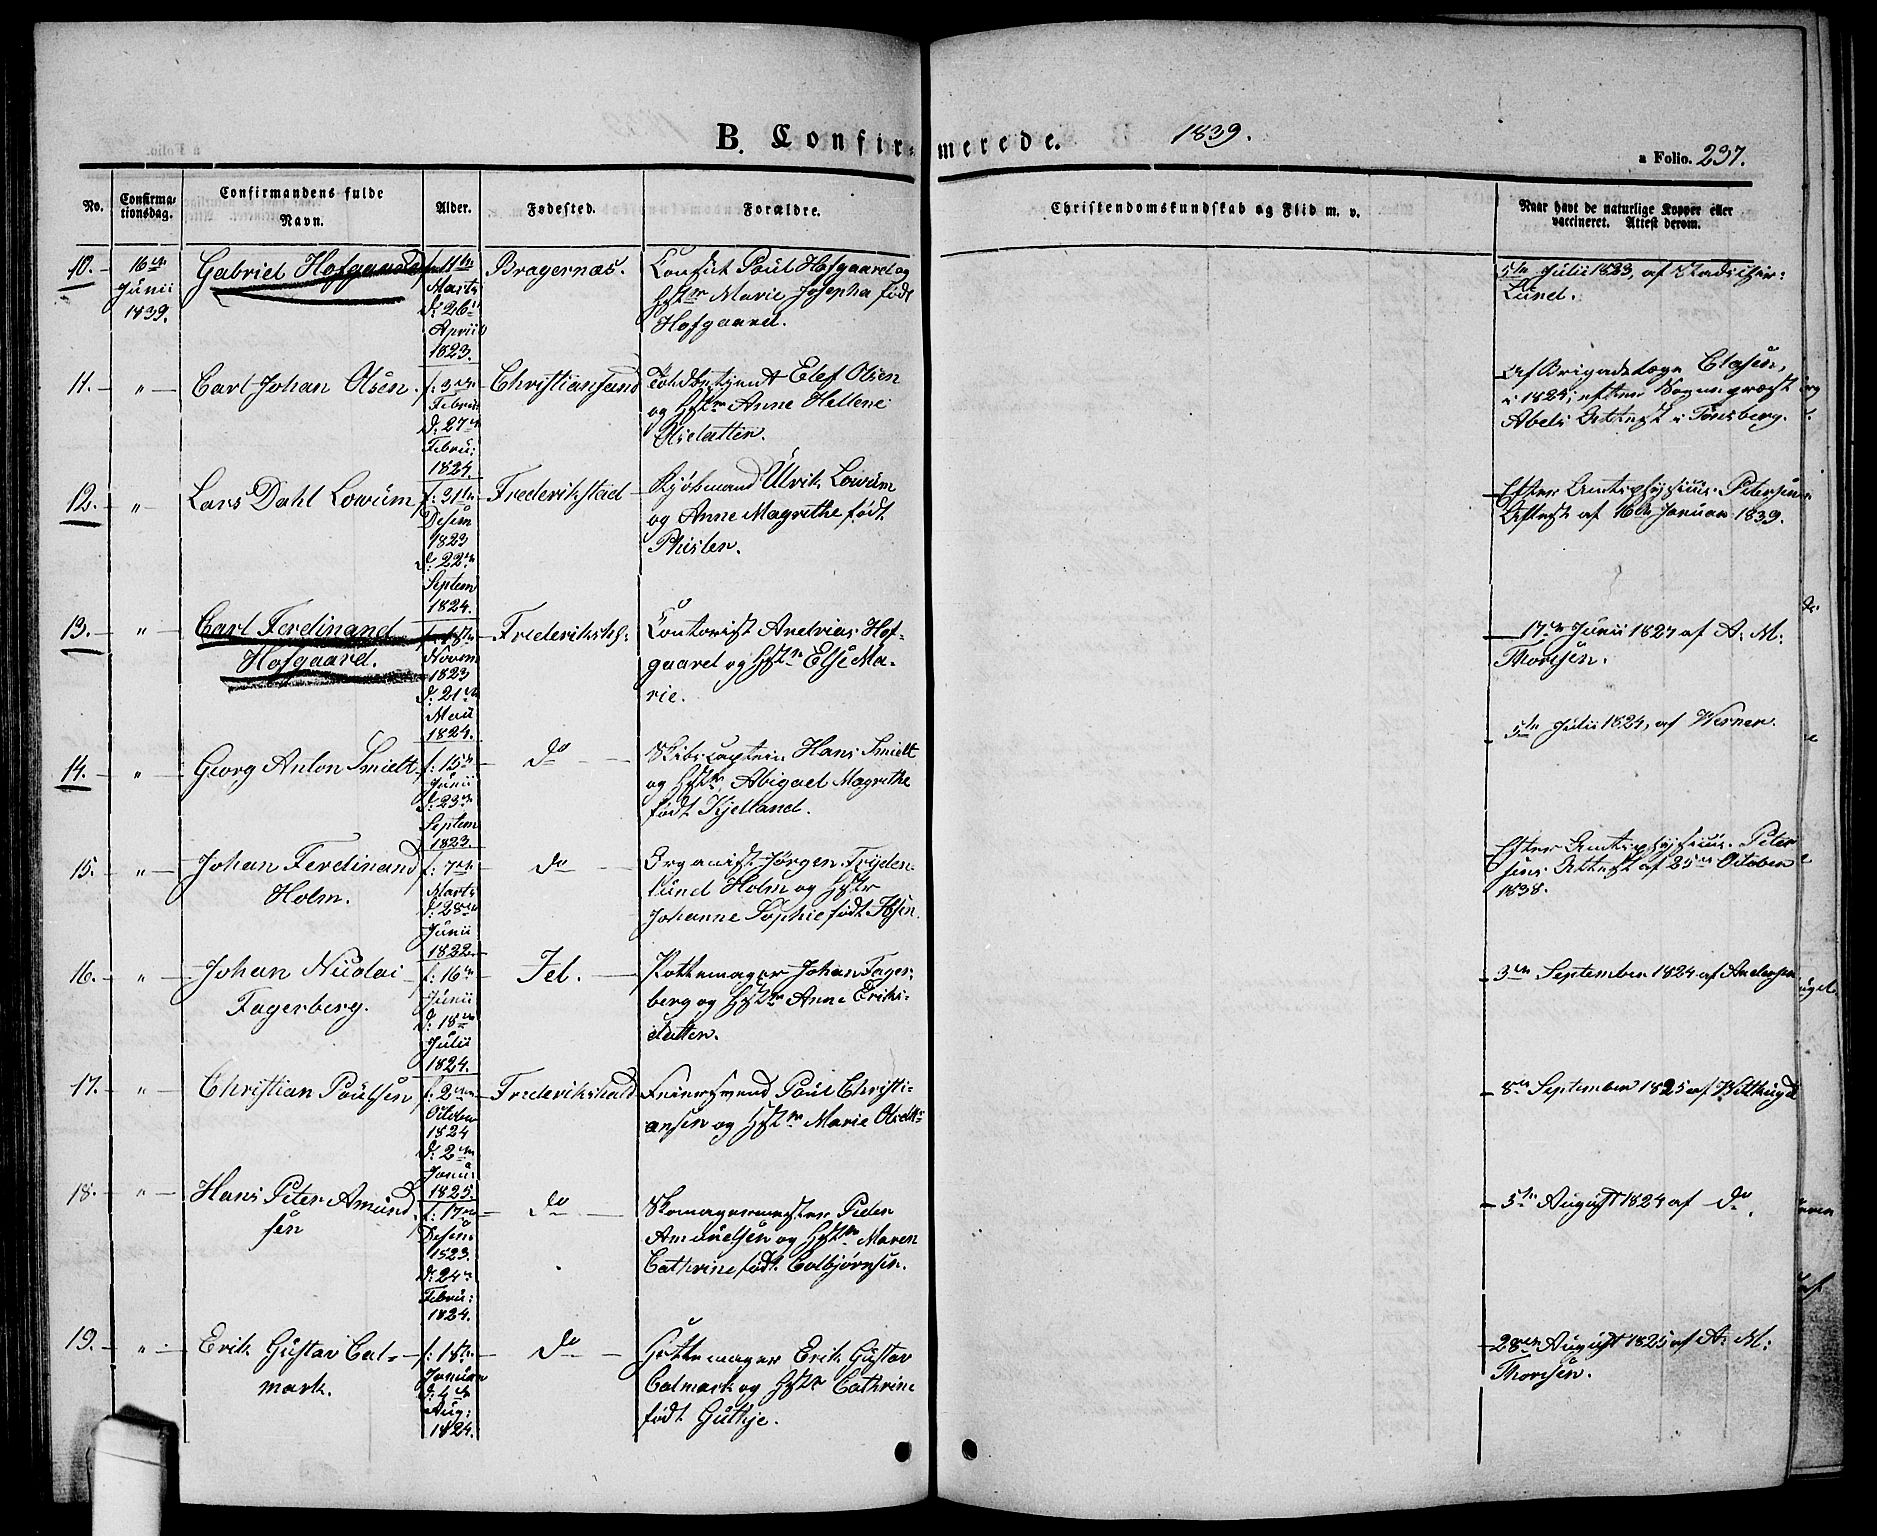 B. Confirmerede. 1839.
a Folio. 237.
No. Confirmationsdag. Confirmandens fulde Navn. Alder. Fødested. Forældre. Christendomskundskab og Flid m. v. Naar havt de naturlige Kopper eller vaccineret. Attest derom.
10. 16de Junii 1839. Gabriel Hofgaard f. 11te Marts d: 26 April 1823. Bragernæs. Poul Hofgaard og Hstr Marie Josepha født Hofgaard. 5te Julii 1823, af Lund.
11. " Carl Johan Olsen. f. 3de Febru d. 27de Febru: 1824. Christiansand Toldbetjent Elef Olsen og Hstr Anne Hellene Olsdatter. Af Brigadelæge Clasen, i 1824, efter Sogneprest Abels Attest i Tønsberg.
12. " Lars Dahl Lowum f: 31te Desem 1823 d: 22de Septem 1824. Frederikstad Kjøbmand Ulrik Lowum og Anne Magrethe født Phister. Efter Amtsphysicus Petersens Attest af 16de Januar 1839.
13. " Carl Ferdinand Hofgaard. f. 18de Novem 1823 d: 21de Maii 1824. Frederiksh: Contorist Andreas Hofgaard og Hstr Else Marie. 17de Junii 1827 af A. M. Thoresen.
14. " Georg Anton Smidt f: 15de Junii d: 23de Septem 1823. do Skibscaptein Hans Smidt og Hstr Abigael Magrethe født Kjelland. 5te Julii 1824, af Werner.
15. " Johan Ferdinand Holm. f: 7de Marts d: 28de Junii 1822. do Organist Jørgen Frydenlund Holm og Hstr Johanne Sophie født Ibsen. Efter Amtsphysicus Petersens Attest af 25de October 1838.
16. " Johan Nicolai Fagerberg. f: 16de Junii d: 18de Julii 1824. Id. Pottemager Johan Fagerberg og Hstr Anne Eriksdatter. 3de September 1824 af Andersen
17. " Christian Poulsen f: 2den October 1824 d: 2den Janu: 1825. Frederikshald Feiersvend Poul Christiansen og Hstr Marie Olsdtr 8de September 1825 af Witthugel
18. " Hans Peter Amundsen f. 17de Desem: 1823. d: 24de Febru: 1824. do Skomagermester Peder Amundsen og Hstr Maren Cathrine født Colbjørnsen. 5te August 1824 af do.
19. " Erik Gustav Calmark. f: 18de Januar d: 4de Aug: 1824. do Hattemager Erik Gustav Calmark og Hstr Cathrine født Guthje. 28de August 1825 af A. M: Thoresen.